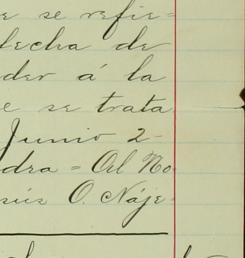 e se refie=
fecha de
der á la
e se trata
Junio 2-
dra = Del No
sús O. Náje-